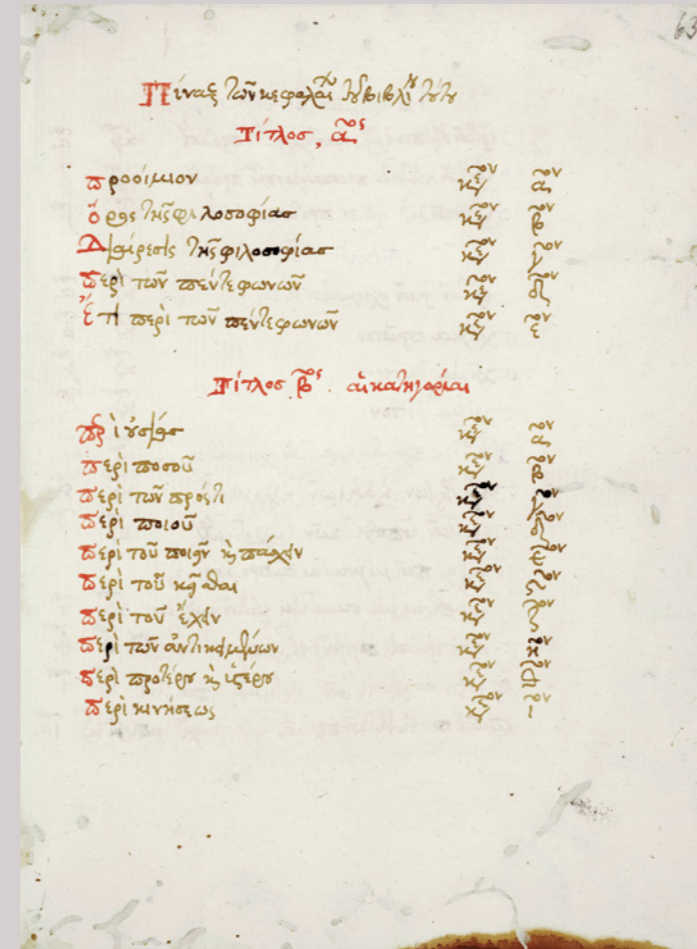 63
Πίναξ τῶν κεφαλαί τοῦ βιβλί τούτου
Τίτλος, αος
προοίμιον κεον αον
ὅρος τῆς φιλοσοφίας κεον βον
Διαίρεσις τῆς φιλοσοφίας κεον γον
περὶ τῶν πέντε φωνῶν κεον δον
Ἔτι περὶ τῶν πέντε φωνῶν κεον εον
Τίτλος βος. αἱ κατηγορίαι
περὶ οὐσίας κεον αον
περὶ ποσοῦ κεον βον
περὶ τῶν πρός τι κεον γον
περὶ ποιοῦ κεον δον
περὶ τοῦ ποιεῖν κ πάσχειν κεον εον
περὶ τοῦ κεῖσθαι κεον ϛον
περὶ τοῦ ἔχειν κεον ζον
περὶ τῶν ἀντικειμένων κεον ηον
περὶ προτέρου κ ὑστέρου κεον θον
περὶ κινήσεως κεον ιον